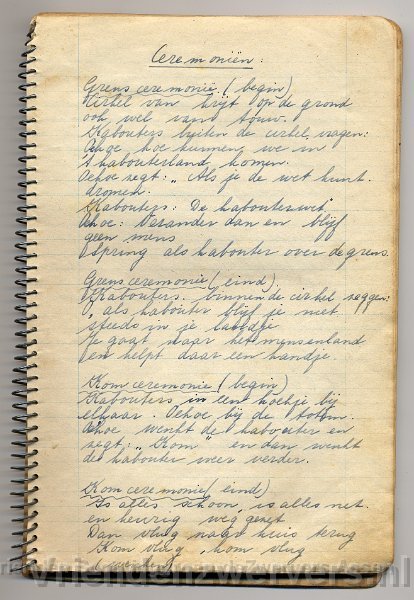 Ceremoniën:
Grensceremonie (begin)
Cirkel van krijt op de grond
ook wel van touw.
Kabouters buiten de cirkel vragen:
Oehoe hoe kunnen we in
't kabouterland komen.
Oehoe zegt: "Als je de wet kunt
dromen.
Kabouters: De kabouterwet
Oehoe: Verander dan en blijf
geen mens
Spring als kabouter over de grens.
Grensceremonie (eind)
Kabouters binnen de cirkel zeggen:
"als kabouter blijf je niet
steeds in je landje
Je gaat naar het mensenland
en helpt daar een handje.
Kom ceremonie (begin)
Kabouters in een hoekje bij
elkaar. Oehoe bij de totem.
Oehoe wenkt de kabouter en
zegt: "Kom" en dan wenkt
de kabouter weer verder.
Kom ceremonie (eind)
Is alles schoon, is alles net
en keurig weg gezet
Dan vlug naar huis terug
Kom vlug, kom vlug
Vriendenzwervers.nl